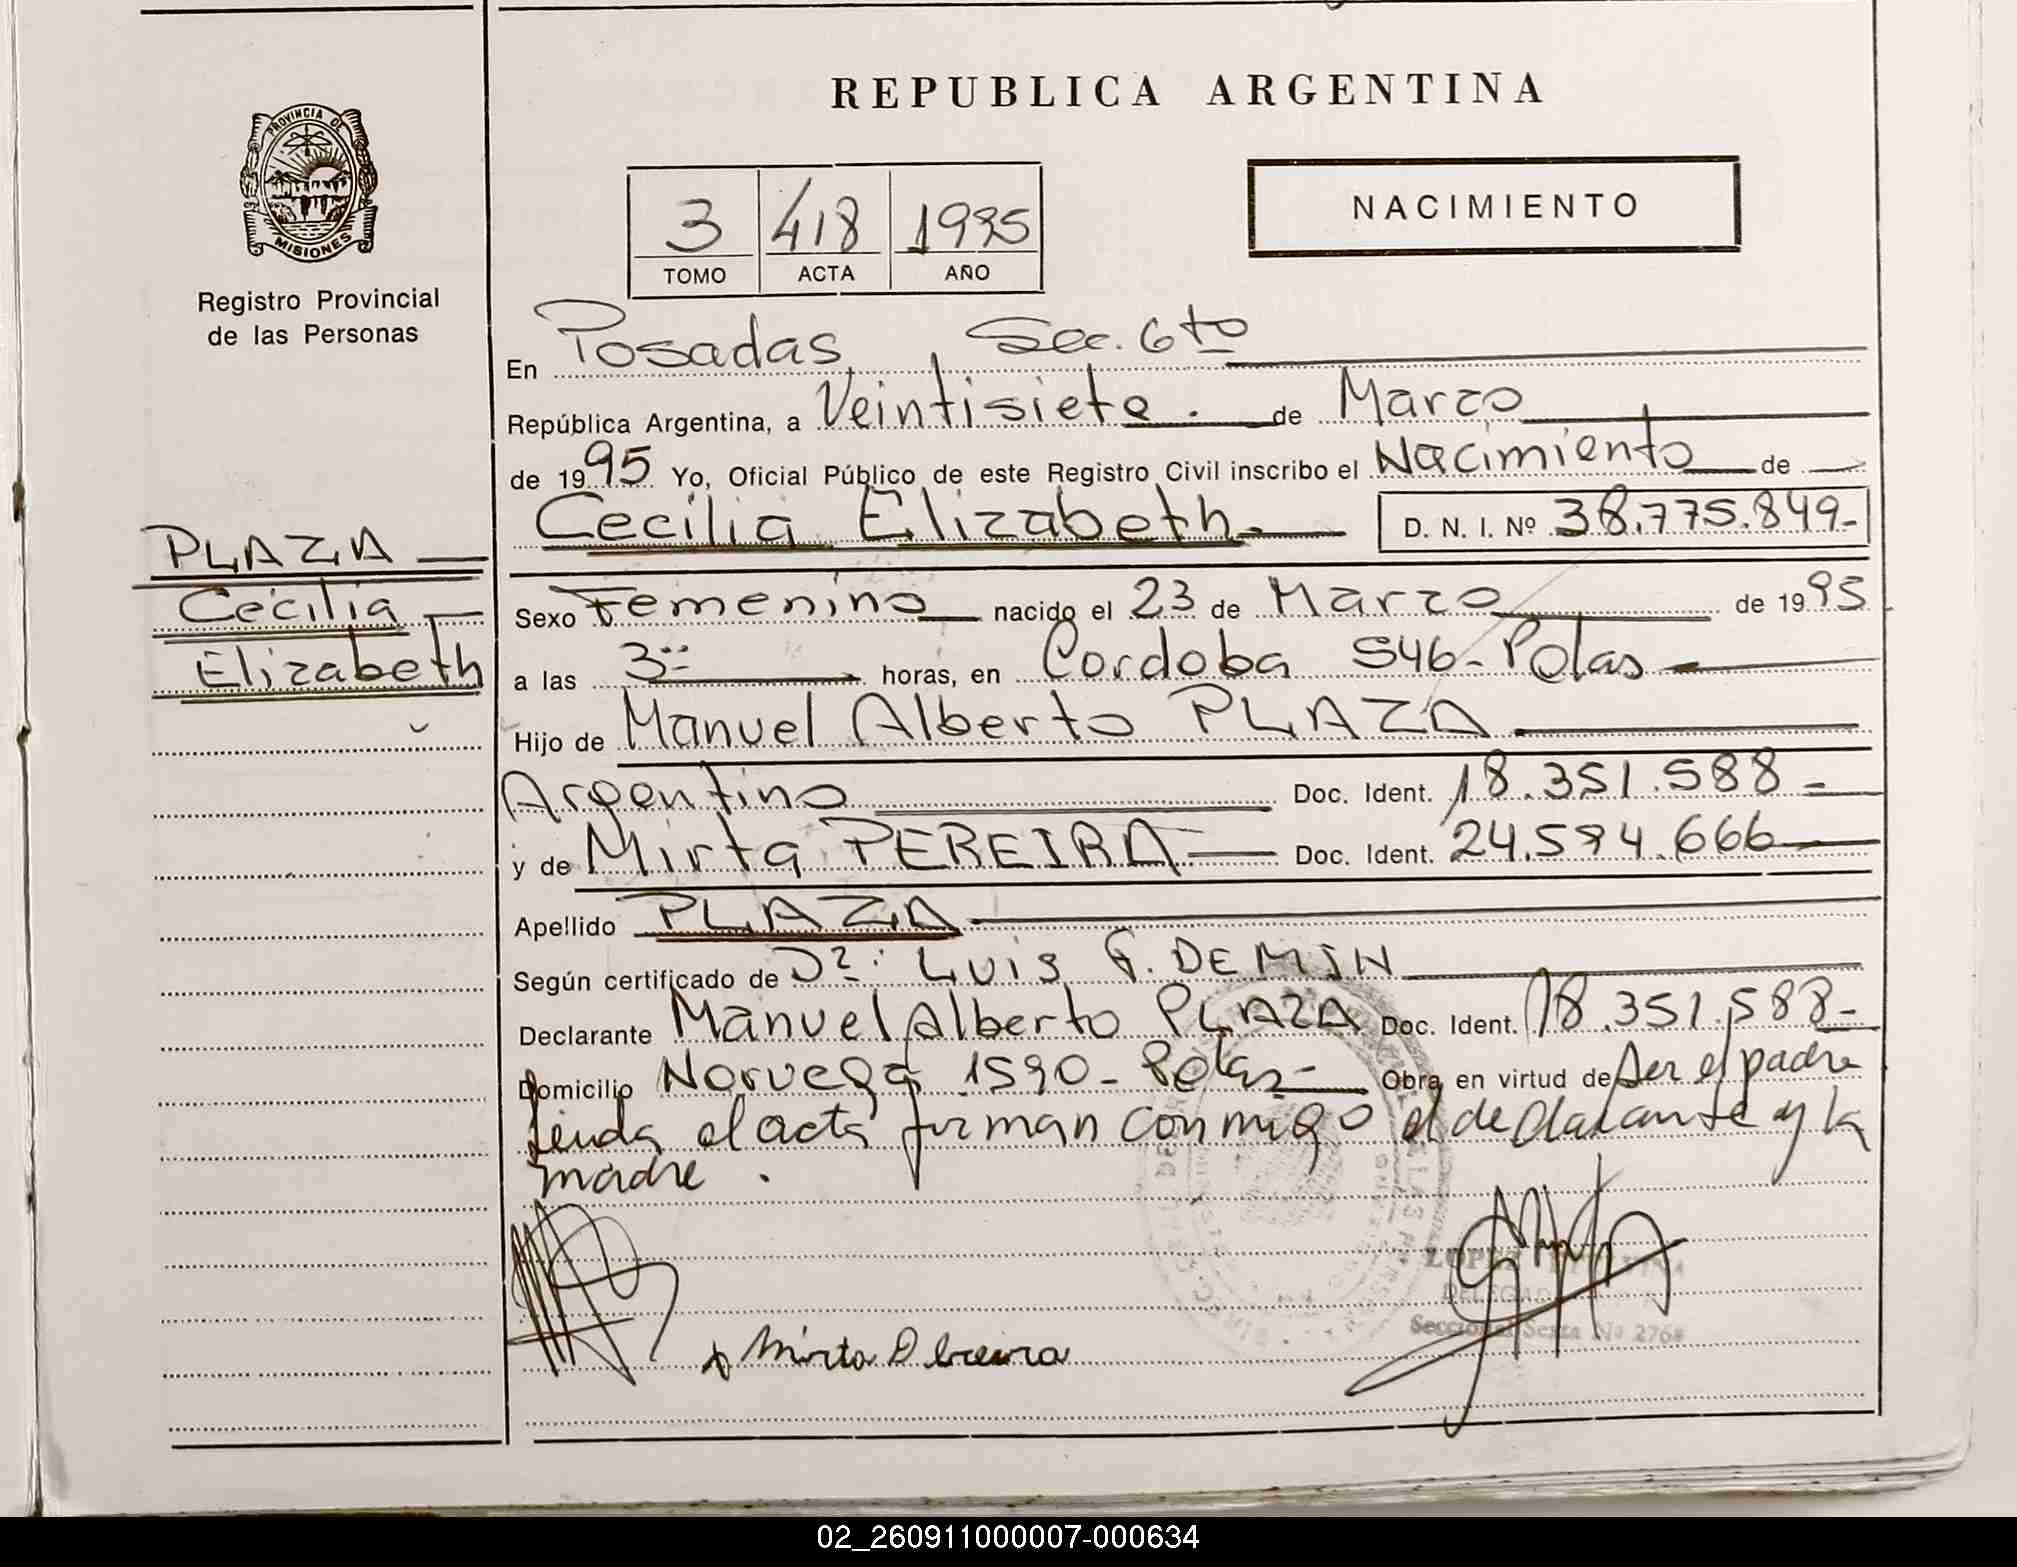 REPUBLICA ARGENTINA
PROVINCIA DE
MISIONES
Registro Provincial
de las Personas
3 418 1995
TOMO ACTA AÑO
NACIMIENTO
En Posadas, Sec. 6to
República Argentina, a Veintisiete. de Marzo
de 1995 Yo, Oficial Público de este Registro Civil inscribo el Nacimiento de
Cecilia Elizabeth D. N. I. Nº 38.775.849-
PLAZA
Cecilia
Elizabeth
Sexo Femenino nacido el 23 de Marzo de 1995
a las 3 horas, en Cordoba 546- Pdas
Hijo de Manuel Alberto PLAZA
Argentino Doc. Ident. 18.351.588
y de Mirta PEREIRA Doc. Ident. 24.574.666
Apellido PLAZA
Según certificado de Luis G. DEMIN
Declarante Manuel Alberto PLAZA Doc. Ident. 18.351.588-
Domicilio Noruega 1590- Pdas- Obra en virtud de Ser el padre
leida el acta firman conmigo el declarante y la
madre.
DELEGAD
Seccional Sexta No 2768
Mirta Pereira
02_260911000007-000634